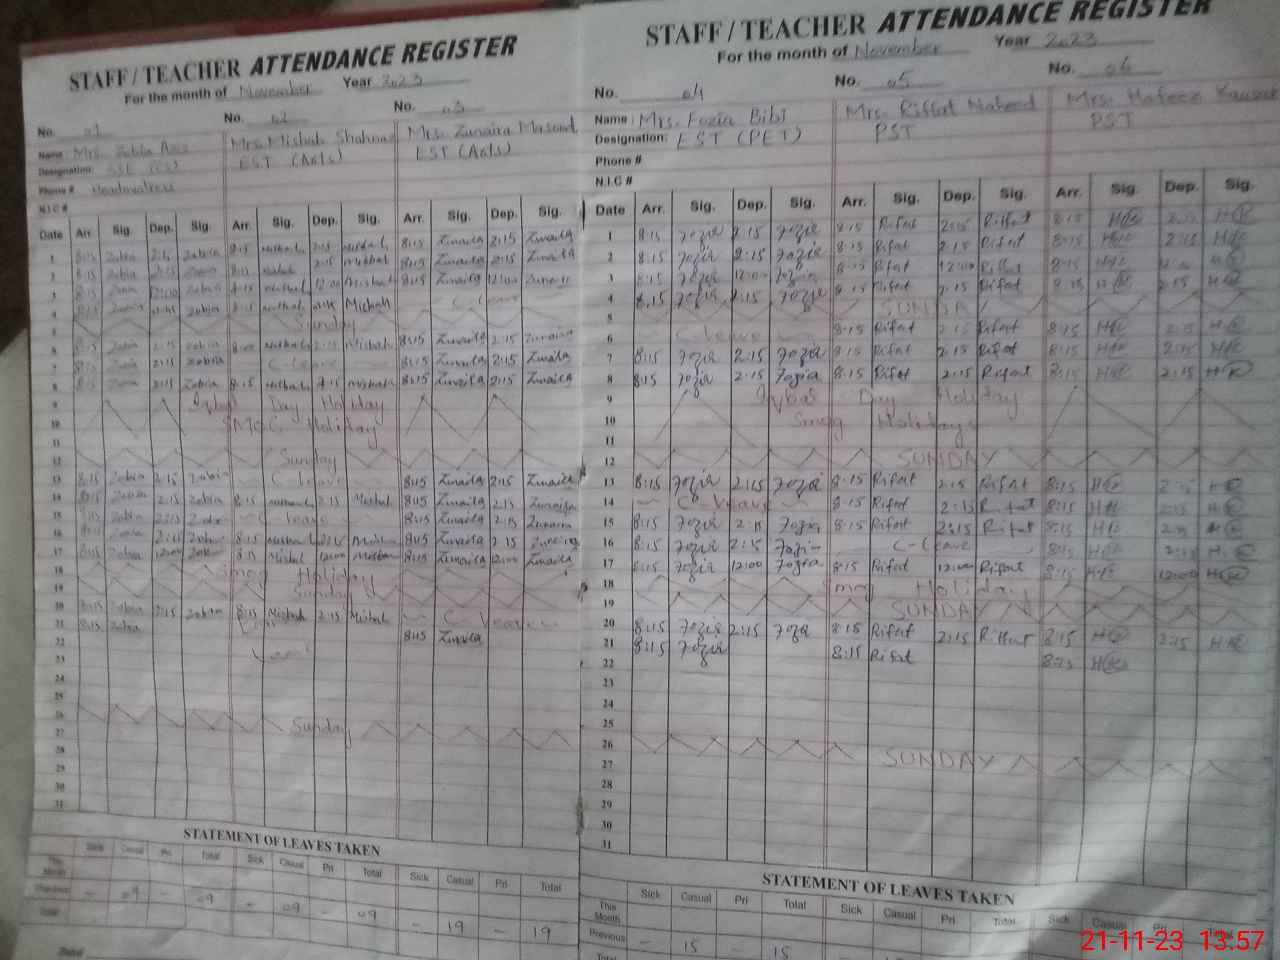 STAFF / TEACHER ATTENDANCE REGISTER
For the month of November Year 2023
No. 01 No. 02 No. 03
Name: Mrs. Zobia Aziz Mrs. Misbah Shahnaz Mrs. Zunaira Masood
Designation: SSE (CS) EST (Arts) EST (Arts)
Phone # Headmistress
N.I.C #
Date Arr. Sig. Dep. Sig. Arr. Sig. Dep. Sig. Arr. Sig. Dep. Sig.
1 8:15 Zobia 2:15 Zobia 8:15 Misbah 2:15 Misbah 8:15 Zunaira 2:15 Zunaira
2 8:15 Zobia 2:15 Zobia 8:15 Misbah 2:15 Misbah 8:15 Zunaira 2:15 Zunaira
3 8:15 Zobia 12:00 Zobia 8:15 Misbah 12:00 Misbah 8:15 Zunaira 12:00 Zunaira
4 8:15 Zobia 2:15 Zobia 8:15 Misbah 2:15 Misbah C-leave
5 Sunday
6 8:15 Zobia 2:15 Zobia 8:15 Misbah 2:15 Misbah 8:15 Zunaira 2:15 Zunaira
7 8:15 Zobia 2:15 Zobia C-leave 8:15 Zunaira 2:15 Zunaira
8 8:15 Zobia 2:15 Zobia 8:15 Misbah 2:15 Misbah 8:15 Zunaira 2:15 Zunaira
9 Iqbal Day Holiday
10 SMOG Holiday
11
12 Sunday
13 8:15 Zobia 2:15 Zobia C-leave 8:15 Zunaira 2:15 Zunaira
14 8:15 Zobia 2:15 Zobia 8:15 Misbah 2:15 Misbah 8:15 Zunaira 2:15 Zunaira
15 8:15 Zobia 2:15 Zobia C-leave 8:15 Zunaira 2:15 Zunaira
16 8:15 Zobia 2:15 Zobia 8:15 Misbah 2:15 Misbah 8:15 Zunaira 2:15 Zunaira
17 8:15 Zobia 12:00 Zobia 8:15 Misbah 12:00 Misbah 8:15 Zunaira 12:00 Zunaira
18 Smog Holiday
19 Sunday
20 8:15 Zobia 2:15 Zobia 8:15 Misbah 2:15 Misbah C-leave
21 8:15 Zobia 8:15 Zunaira
22
23
24
25
26 Sunday
27
28
29
30
31
STATEMENT OF LEAVES TAKEN
Sick Casual Pri Total Sick Casual Pri Total Sick Casual Pri Total
This Month
Previous - 09 - 09 - 09 - 09 - 19 - 19
Total
STAFF / TEACHER ATTENDANCE REGISTER
For the month of November Year 2023
No. 04 No. 05 No. 06
Name: Mrs. Fozia Bibi Mrs. Riffat Naheed Mrs. Hafeez Kausar
Designation: EST (PET) PST PST
Phone #
N.I.C #
Date Arr. Sig. Dep. Sig. Arr. Sig. Dep. Sig. Arr. Sig. Dep. Sig.
1 8:15 Fozia 2:15 Fozia 8:15 Rifat 2:15 Riffat 8:15 HK 2:15 HK
2 8:15 Fozia 2:15 Fozia 8:15 Rifat 2:15 Rifat 8:15 HK 2:15 HK
3 8:15 Fozia 12:00 Fozia 8:15 Rifat 12:00 Riffat 8:15 HK 12:00 HK
4 8:15 Fozia 2:15 Fozia 8:15 Rifat 2:15 Rifat 8:15 HK 2:15 HK
5 SUNDAY
6 C-leave 8:15 Rifat 2:15 Rifat 8:15 HK 2:15 HK
7 8:15 Fozia 2:15 Fozia 8:15 Rifat 2:15 Rifat 8:15 HK 2:15 HK
8 8:15 Fozia 2:15 Fozia 8:15 Rifat 2:15 Rifat 8:15 HK 2:15 HK
9 Iqbal Day Holiday
10 Smog Holidays
11
12 SUNDAY
13 8:15 Fozia 2:15 Fozia 8:15 Rifat 2:15 Rifat 8:15 HK 2:15 HK
14 C-leave 8:15 Rifat 2:15 Rifat 8:15 HK 2:15 HK
15 8:15 Fozia 2:15 Fozia 8:15 Rifat 2:15 Rifat 8:15 HK 2:15 HK
16 8:15 Fozia 2:15 Fozia C-leave 8:15 HK 2:15 HK
17 8:15 Fozia 12:00 Fozia 8:15 Rifat 12:00 Rifat 8:15 HK 12:00 HK
18 Smog Holiday
19 SUNDAY
20 8:15 Fozia 2:15 Fozia 8:15 Rifat 2:15 Riffat 8:15 HK 2:15 HK
21 8:15 Fozia 8:15 Rifat 8:15 HK
22
23
24
25
26 SUNDAY
27
28
29
30
31
STATEMENT OF LEAVES TAKEN
Sick Casual Pri Total Sick Casual Pri Total Sick Casual Pri Total
This Month
Previous - 15 - 15
Total
21-11-23 13:57